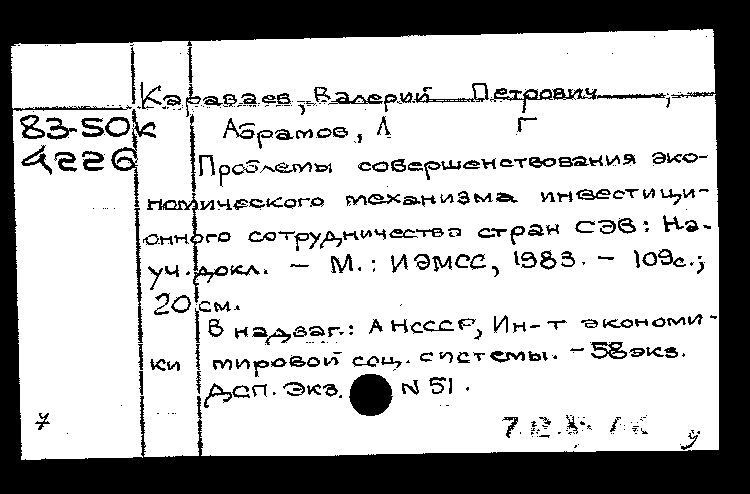 Караваев, Валерий Петрович,
83-50к Абрамов, Л Г
4226 Проблемы совершенствования эко-
номического механизма инвестици-
онного сотрудничества стран СЭВ: На-
уч. докл. - М.: ИЭМСС, 1983. - 109с.;
20 см.
В надзаг.: АНСССР, Ин-т экономи-
ки мировой соц. системы. - 58экз.
ДСП. Экз. N 51.
7